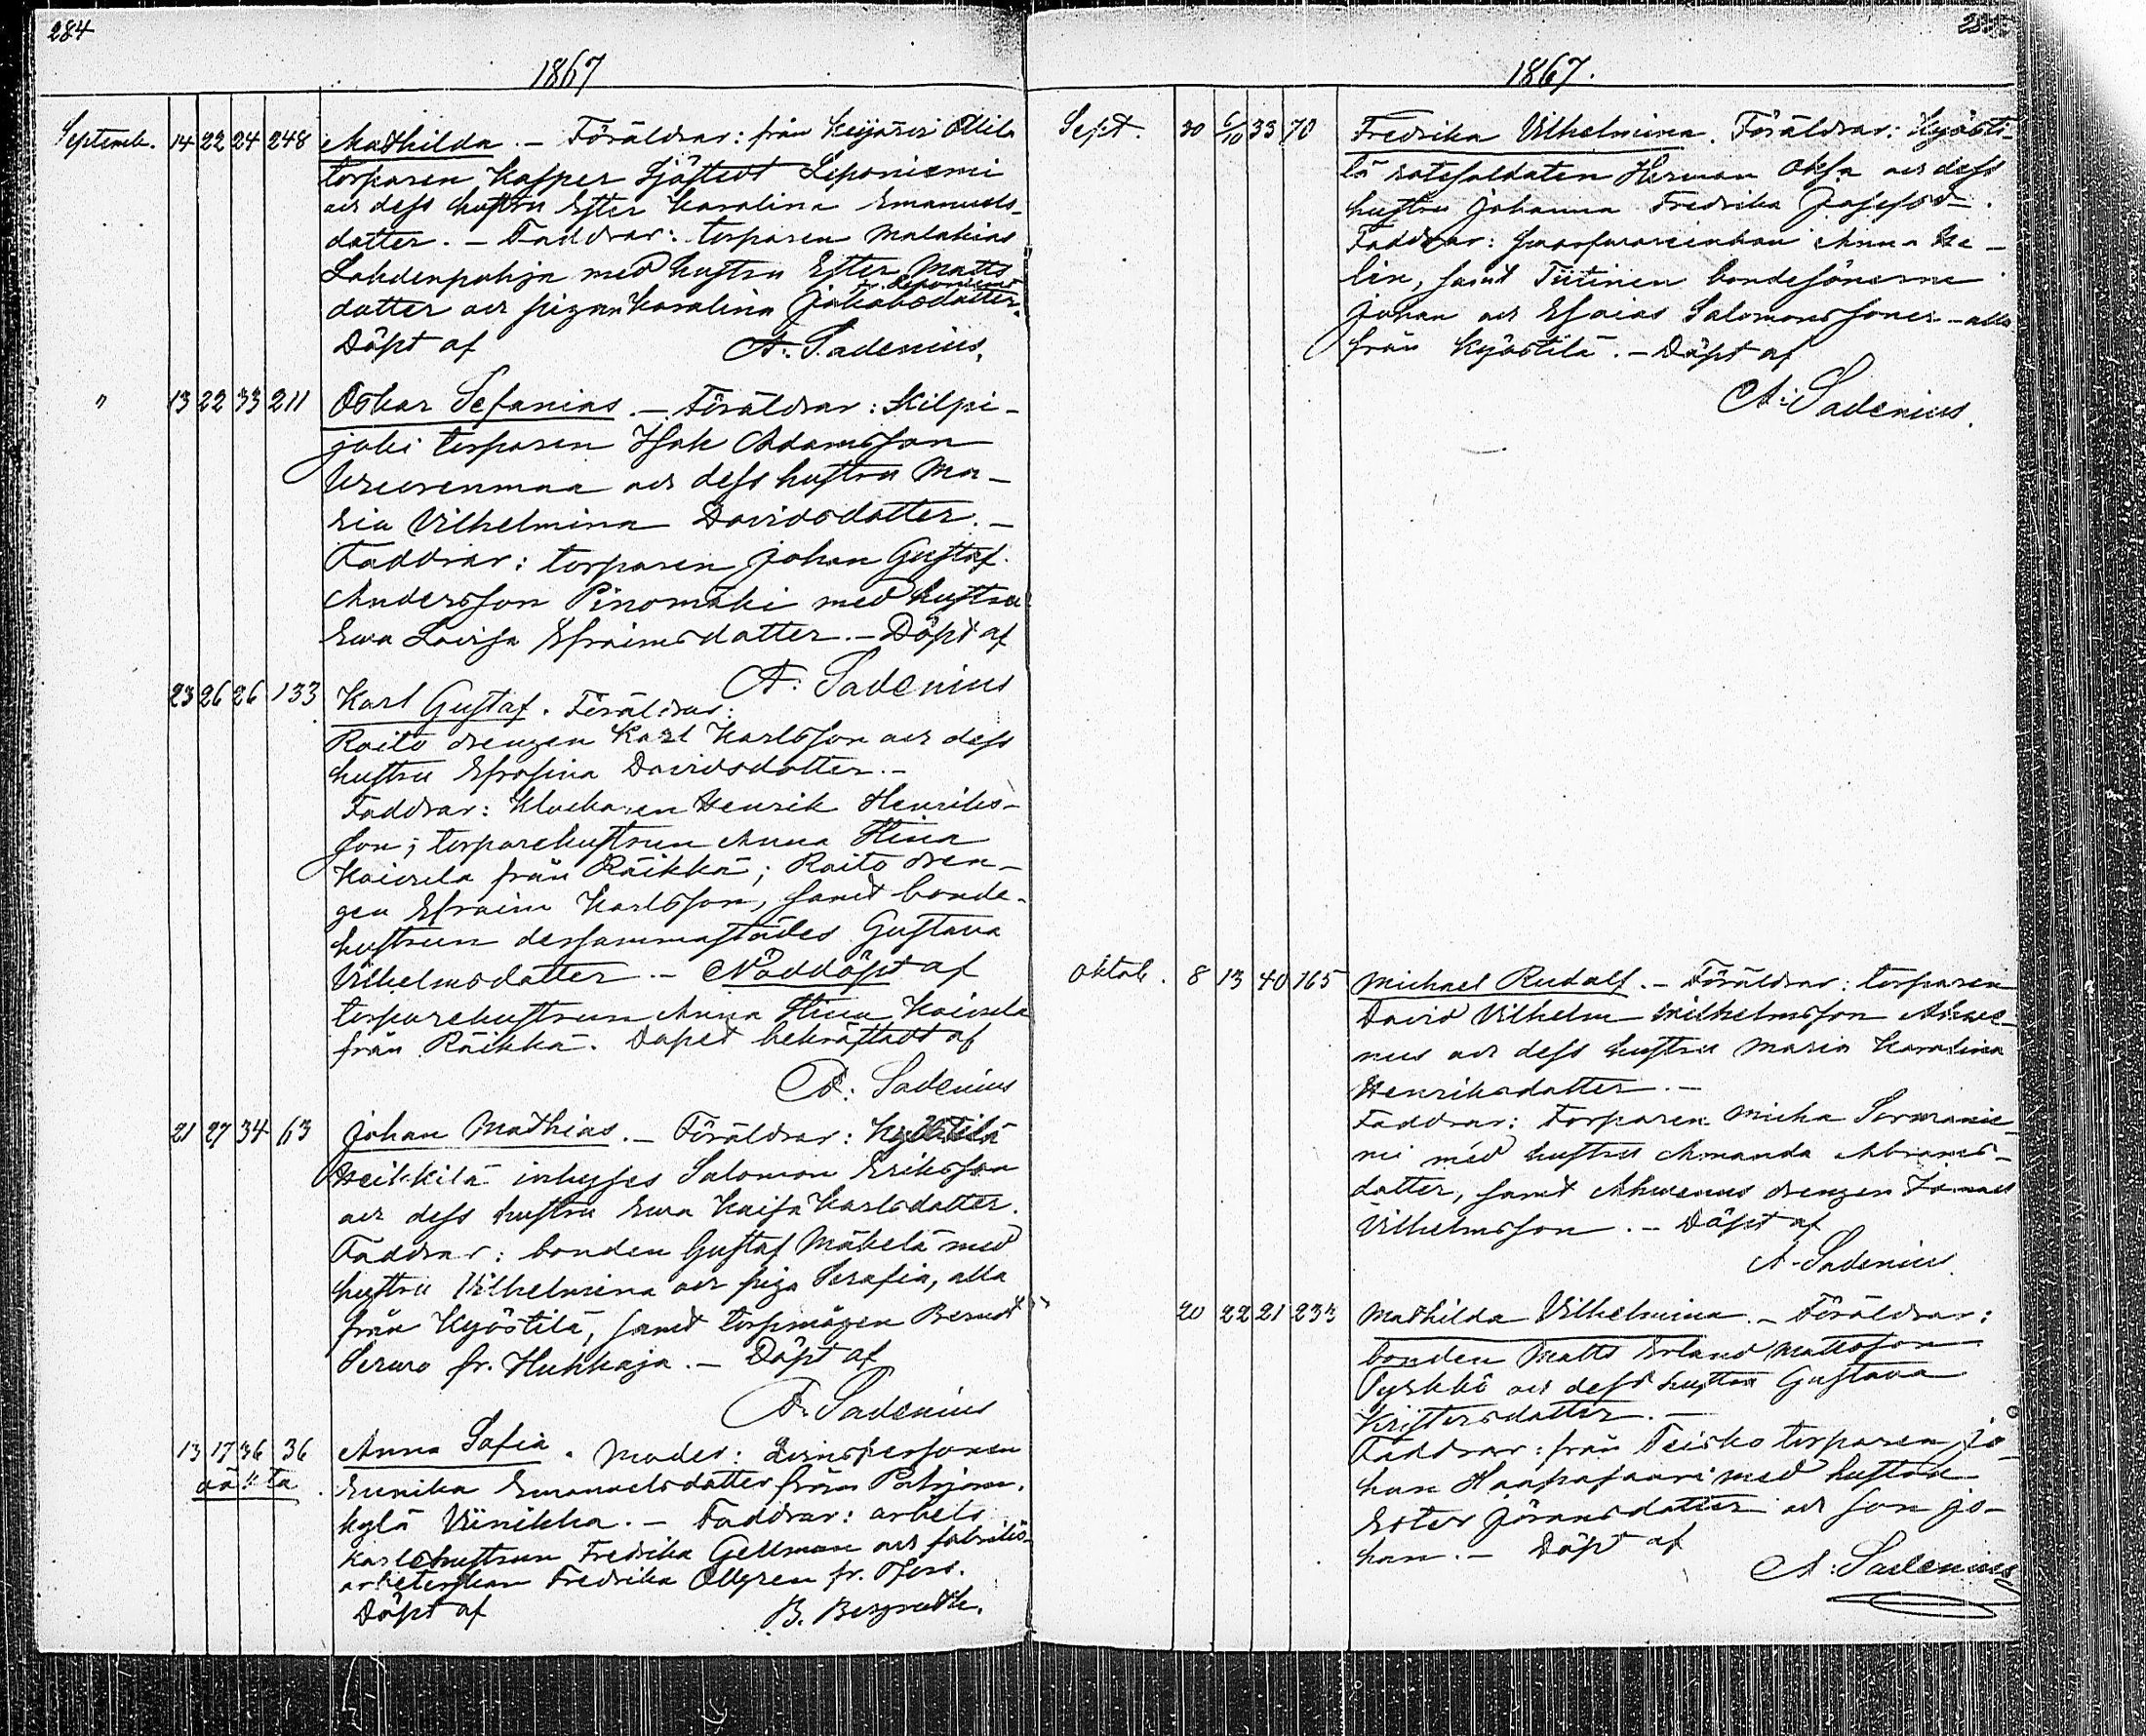 284
1867
Septemb. 14 22 24 248 Mathilda. — Föräldrar: från Keijäsri Ollila
torparen Kasper Sjöstedt Leponiemi
och dess hustru Ester Karolina Emanuels-
dotter. — Faddrar: torparen Malakias
Lahdenpohja med hustru Ester Matts
dotter och pigan Karolina Jakobsdotter.
Döpt af A. Sadenius.
" 13 22 33 211 Oskar Sefanias. — Föräldrar: Kilpi-
joki torparen Isak Adamsson
och dess hustru Ma-
ria Vilhelmina Davidsdotter. —
Faddrar: torparen Johan Gustaf
Andersson Pinomäki med hustru
Eva Lovisa Efraimsdotter. — Döpt af
A: Sadenius
23 26 26 133 Karl Gustaf. Föräldrar:
Raito drengen Karl Karlsson och dess
hustru Efrosina Davidsdotter. —
Faddrar: Klockaren Henrik Henriks-
son; torparehustrun Anna Stina
Koivula från Räikkä; Raito dren-
gen Efraim Karlsson, samt bonde-
hustrun dersammastädes Gustava
Vilhelmsdotter. — Nöddöpt af
torparehustrun Anna Stina Koivula
från Räikkä. Dopet bekräftadt af
A: Sadenius
21 27 34 63 Johan Mathias. — Föräldrar: Kyöstilä
Heikkilä inhyses Salomon Eriksson
och dess hustru Eva Kaisa Karlsdotter.
Faddrar: bonden Gustaf Mäkelä med
hustru Vilhelmina och piga Serafia, alla
från Kyöstilä, samt torpmågen Berndt
Servo fr. Hukkaja. — Döpt af
A. Sadenius
13 17 36 36 Anna Sofia. Moder: Qvinspersonen
oä ta Eunika Emanuelsdotter från Pohjan-
kylä Viinikka. — Faddrar: arbets
karlshustrun Fredrika Gellman och fabriks-
arbeterskan Fredrika Ollgren fr. Tfors.
Döpt af B. Bergroth.
1867.
Sept. 30 6/10 33 70 Fredrika Vilhelmina. Föräldrar: Kyösti-
lä rotesoldaten Herman Oksa och dess
hustru Johanna Fredrika Josefsd.
Faddrar: Anna He-
lin, samt Tiitinen bondesönerne
Johan och Esaias Salomonssoner — alla
från Kyöstilä. — Döpt af
A: Sadenius.
Oktob. 8 13 40 165 Michael Rudolf. — Föräldrar: torparen
David Vilhelm Wilhelmsson Ahve-
nus och dess hustru Maria Karolina
Henriksdotter. —
Faddrar: Torparen Micha Sormanie-
mi med hustru Amanda Abrams-
dotter, samt Ahvenus drengen
Vilhelmsson. — Döpt af
A. Sadenius
20 22 21 234 Mathilda Vilhelmina. — Föräldrar:
bonden Matts Erland Mattsson
Pyrkkö och dess hustru Gustava
Kristersdotter. —
Faddrar: från Teisko torparen Jo-
han Haapasaari med hustru
Ester Göransdotter och son Jo-
han. — Döpt af
A: Sadenius